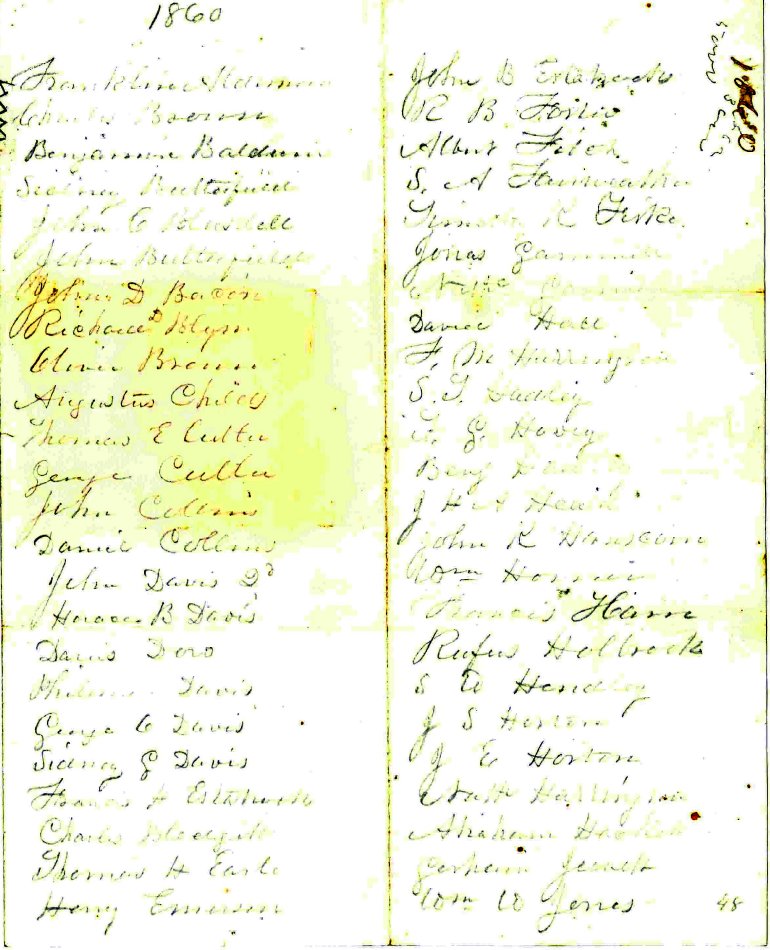 1860
Franklin Alderman
Charles Brown
Benjamin Baldwin
Sidney Butterfield
John C Blasdell
John Butterfield
John D Bacon
Richard Blynn
Oliver Brown
Augustus Childs
Thomas E Cutter
George Cutter
John Collins
Daniel Collins
John Davis 2d
Horace B Davis
Davis Dow
Davis
George C Davis
Sidney G Davis
Francis H Estabrook
Charles Blodgett
Thomas H Earle
Henry Emerson
John B Estabrook
R B Foster
Albert Fitch
S. A Fairweather
Timothy K Fiske.
Jonas Gammell
Daniel Hall
F. M Harrington
S. T. Hadley
G. Hovey
Benj
J H A Heard
John K Hanscom
Wm Horner
Francis Ham
Rufus Holbrook
S W Hendley
J S Horton
J E Horton
Nath Harrington
Abraham Haskell
Gorham Jewett
Wm W Jones 48
1860